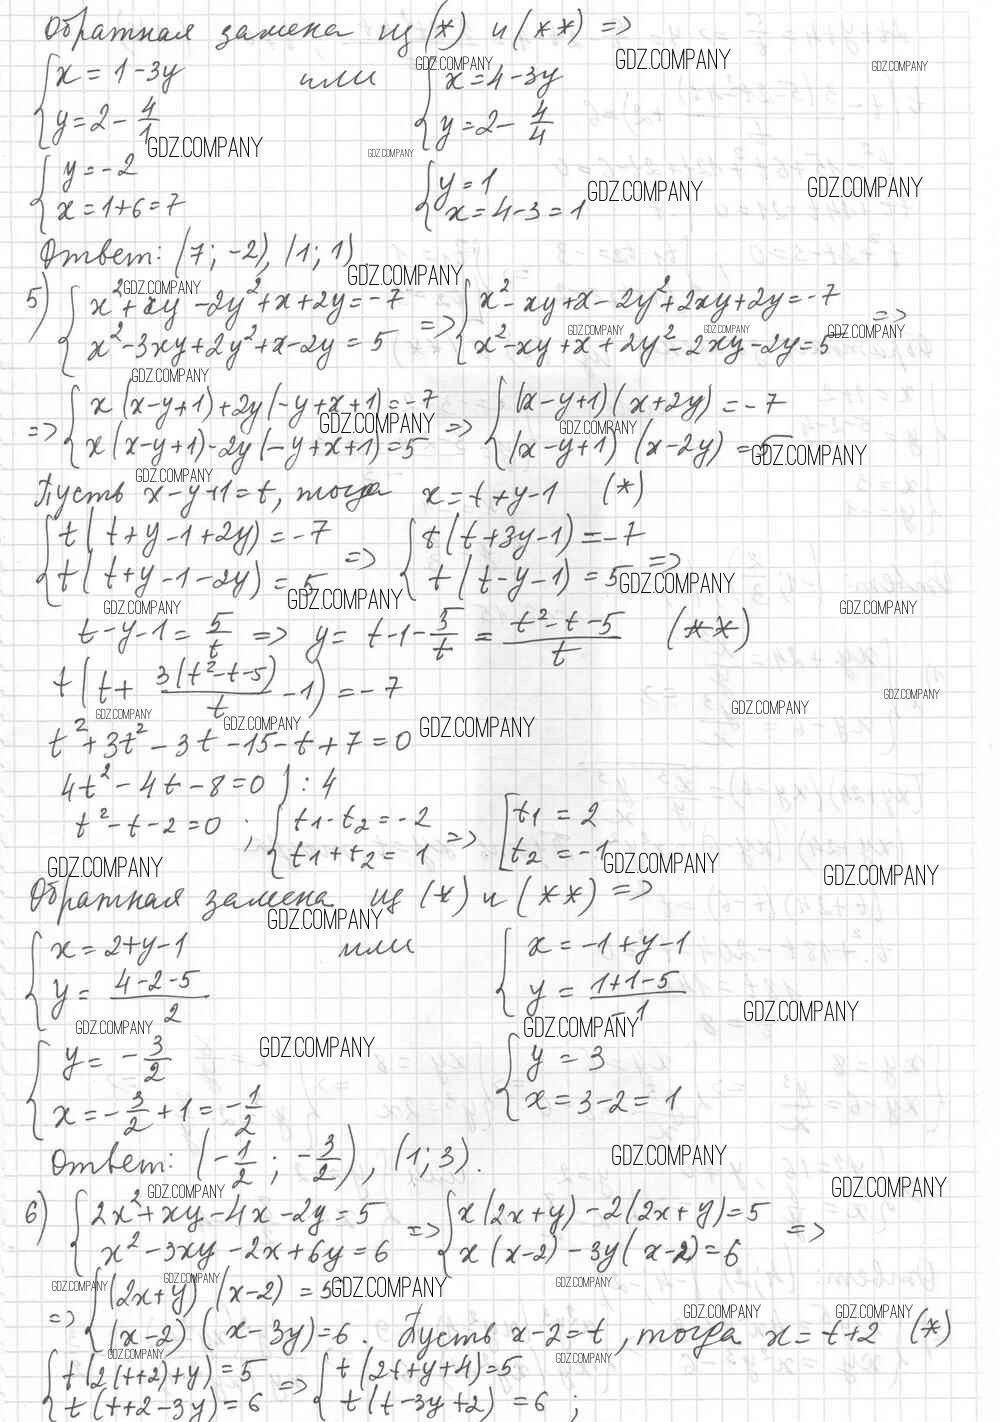 Обратная замена из (*) и (**) =>
{ x = 1-3y или { x = 4-3y
{ y = 2 - 4/1 { y = 2 - 4/4
{ y = -2 { y = 1
{ x = 1+6 = 7 { x = 4-3 = 1
Ответ: (7; -2), (1; 1)
5) { x²+xy-2y²+x+2y = -7 => { x²-xy+x-2y²+2xy+2y = -7 =>
{ x²-3xy+2y²+x-2y = 5 { x²-xy+x+2y²-2xy-2y = 5
=> { x(x-y+1)+2y(-y+x+1) = -7 => { (x-y+1)(x+2y) = -7
{ x(x-y+1)-2y(-y+x+1) = 5 { (x-y+1)(x-2y) = 5
Пусть x-y+1 = t, тогда x = t+y-1 (*)
{ t(t+y-1+2y) = -7 => { t(t+3y-1) = -7 =>
{ t(t+y-1-2y) = 5 { t(t-y-1) = 5
t-y-1 = 5/t => y = t-1-5/t = (t²-t-5)/t (**)
t(t + 3(t²-t-5)/t - 1) = -7
t²+3t²-3t-15-t+7 = 0
4t²-4t-8 = 0 ) : 4
t²-t-2 = 0 ; { t1·t2 = -2 => [ t1 = 2
{ t1+t2 = 1 [ t2 = -1
Обратная замена из (*) и (**) =>
{ x = 2+y-1 или { x = -1+y-1
{ y = (4-2-5)/2 { y = (1+1-5)/-1
{ y = -3/2 { y = 3
{ x = -3/2+1 = -1/2 { x = 3-2 = 1
Ответ: (-1/2; -3/2), (1; 3).
6) { 2x²+xy-4x-2y = 5 => { x(2x+y)-2(2x+y) = 5 =>
{ x²-3xy-2x+6y = 6 { x(x-2)-3y(x-2) = 6
=> { (2x+y)(x-2) = 5
{ (x-2)(x-3y) = 6. Пусть x-2 = t, тогда x = t+2 (*)
{ t(2(t+2)+y) = 5 => { t(2t+y+4) = 5
{ t(t+2-3y) = 6 { t(t-3y+2) = 6 ;
GDZ.COMPANY